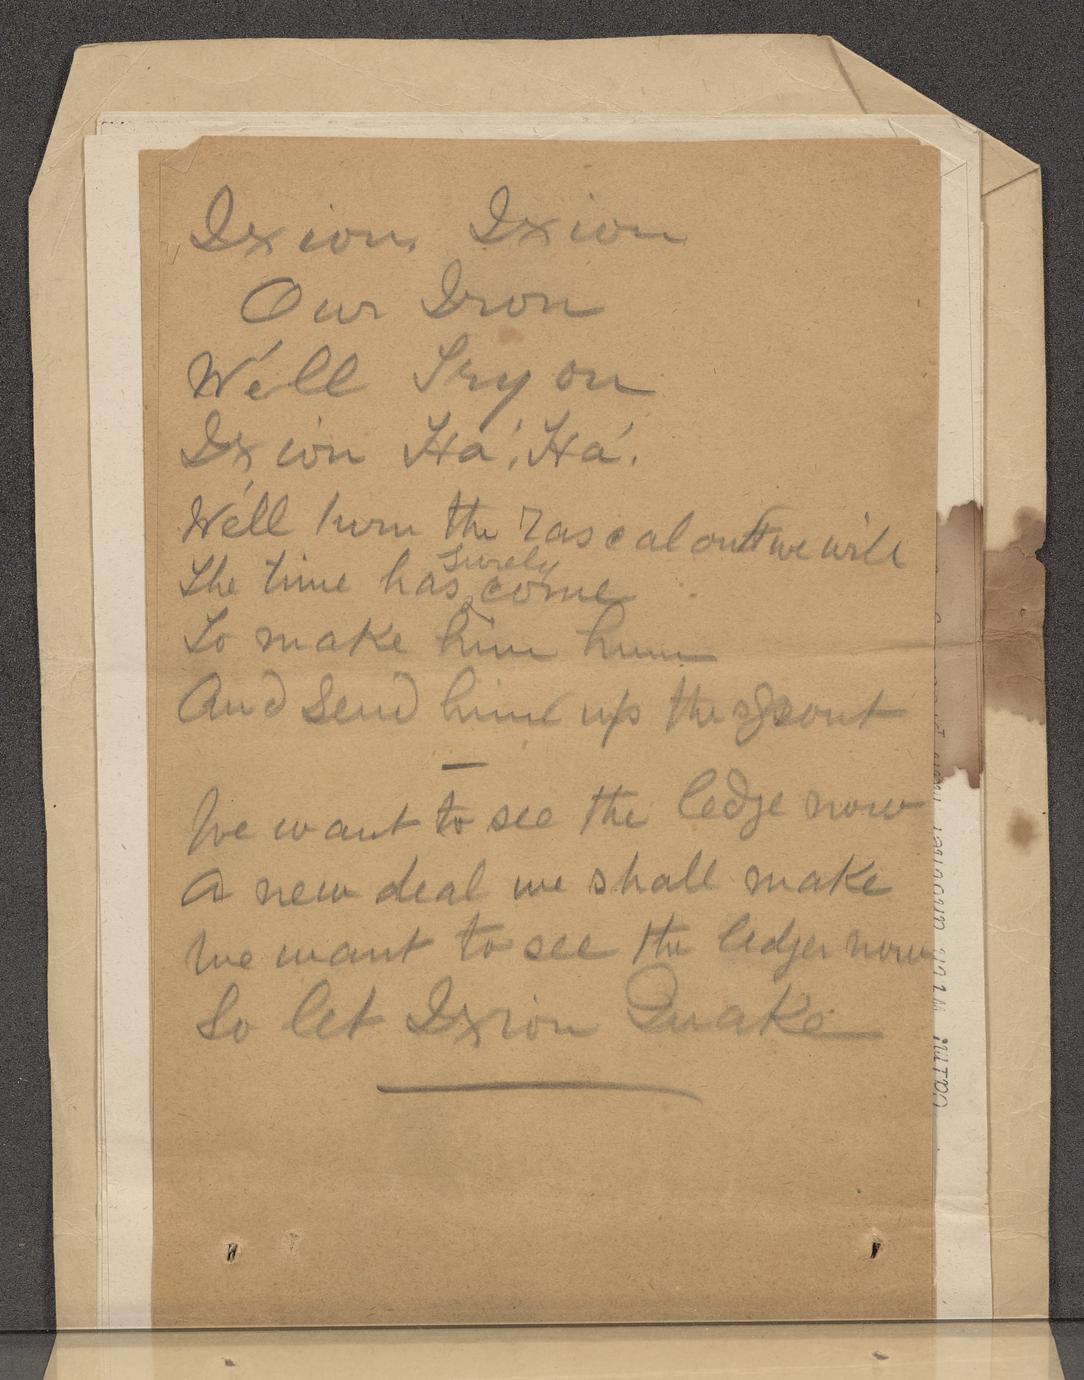 Ixion, Ixion
Our Iron
We'll Try on
Ixion Ha! Ha!
We'll turn the rascal out we will
The time has surely come
To make him hum
And Send him up the spout
—
We want to see the ledge now
A new deal we shall make
We want to see the ledger now
So let Ixion Quake